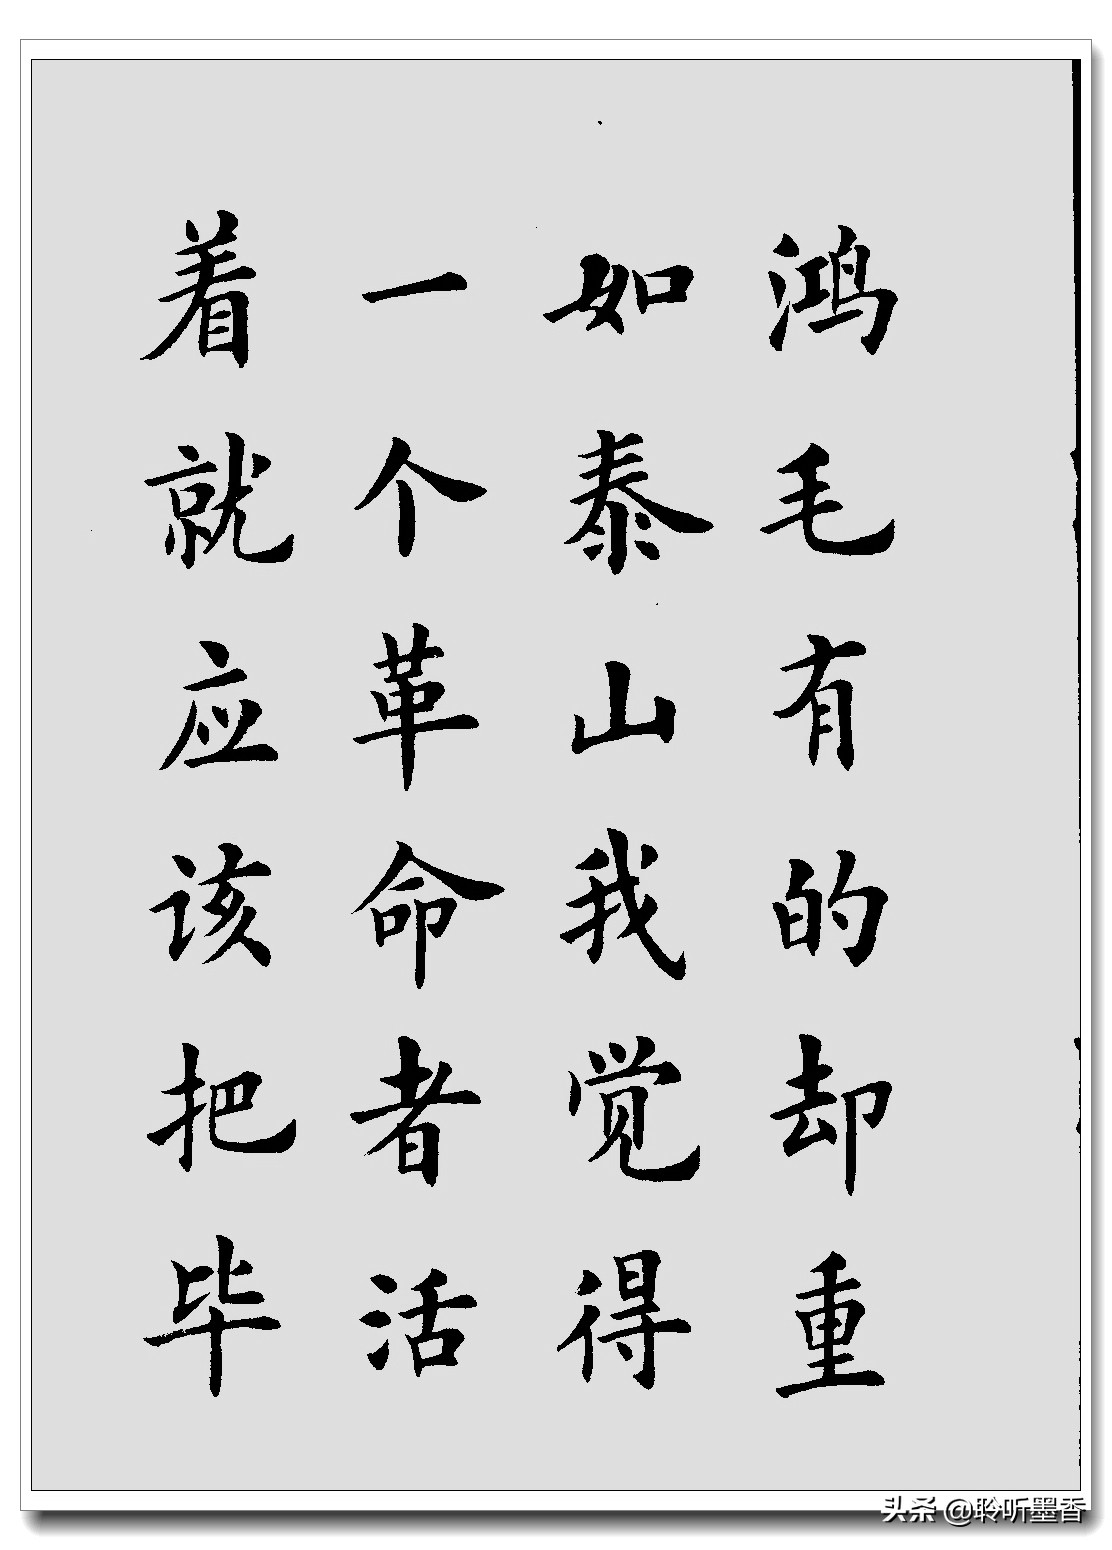 鸿毛有的却重
如泰山我觉得
一个革命者活
着就应该把毕
头条 @聆听墨香